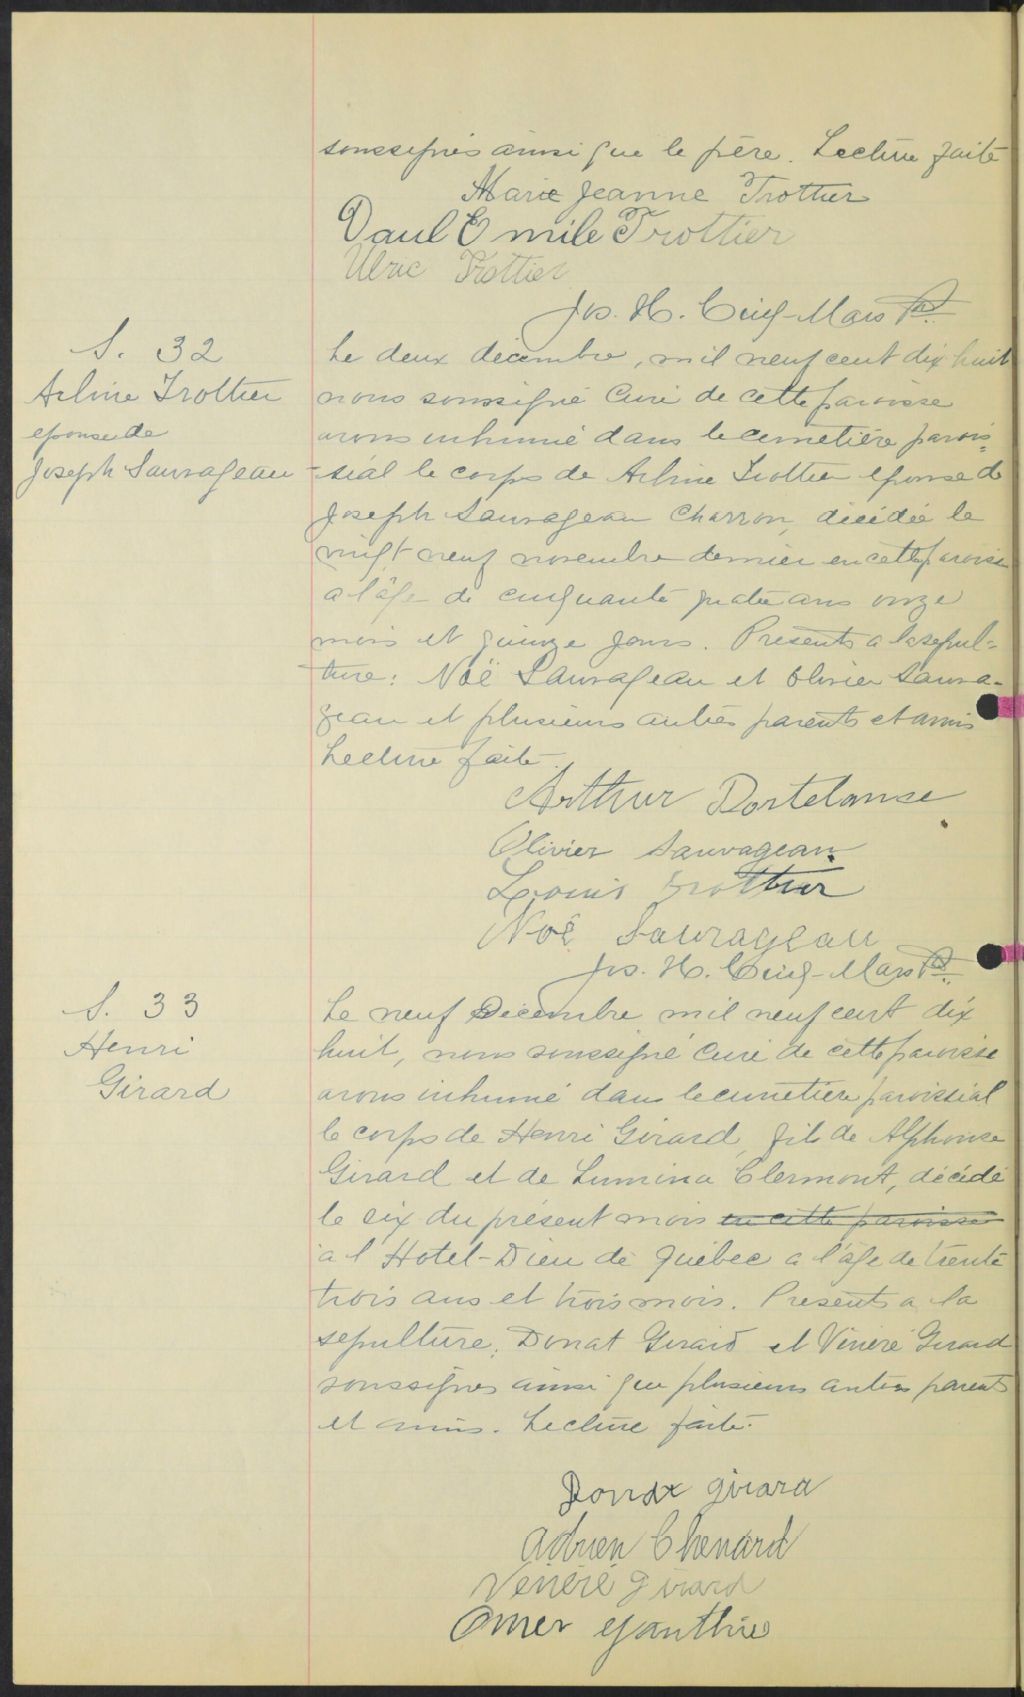 soussignés ainsi que le père. Lecture faite
Marie Jeanne Trottier
Paul Emile Trottier
Ulric Trottier
Jos. H. Cinq-Mars Ptre
S. 32
Arline Trottier
epouse de
Joseph Sauvageau
Le deux décembre, mil neuf cent dix huit
nous soussigné Curé de cette paroisse
avons inhumé dans le cimetière parois=
sial le corps de Arline Trottier epouse de
Joseph Sauvageau Charron, décédée le
vingt neuf novembre dernier en cette paroisse
a l'âge de cinquante quatre ans onze
mois et quinze jours. Presents a la sepul=
ture: Noë Sauvageau et Olivier Sauva-
geau et plusieurs autres parents et amis
Lecture faite.
Arthur Portelance
Olivier Sauvageau
Louis Trottier
Noë Sauvageau
Jos. H. Cinq-Mars Ptre
S. 33
Henri
Girard
Le neuf Décembre mil neuf cent dix
huit, nous soussigné Curé de cette paroisse
avons inhumé dans le cimetière paroissial
le corps de Henri Girard, fils de Alphonse
Girard et de Lumina Clermont, décédé
le six du présent mois en cette paroisse
a l'Hotel-Dieu de Québec a l'âge de trente
trois ans et trois mois. Presents a la
sepulture: Donat Girard et Vénéré Girard
soussignés ainsi que plusieurs autres parents
et amis. Lecture faite.
Donat girard
Adrien Chenard
Vénéré Girard
Omer Gauthier